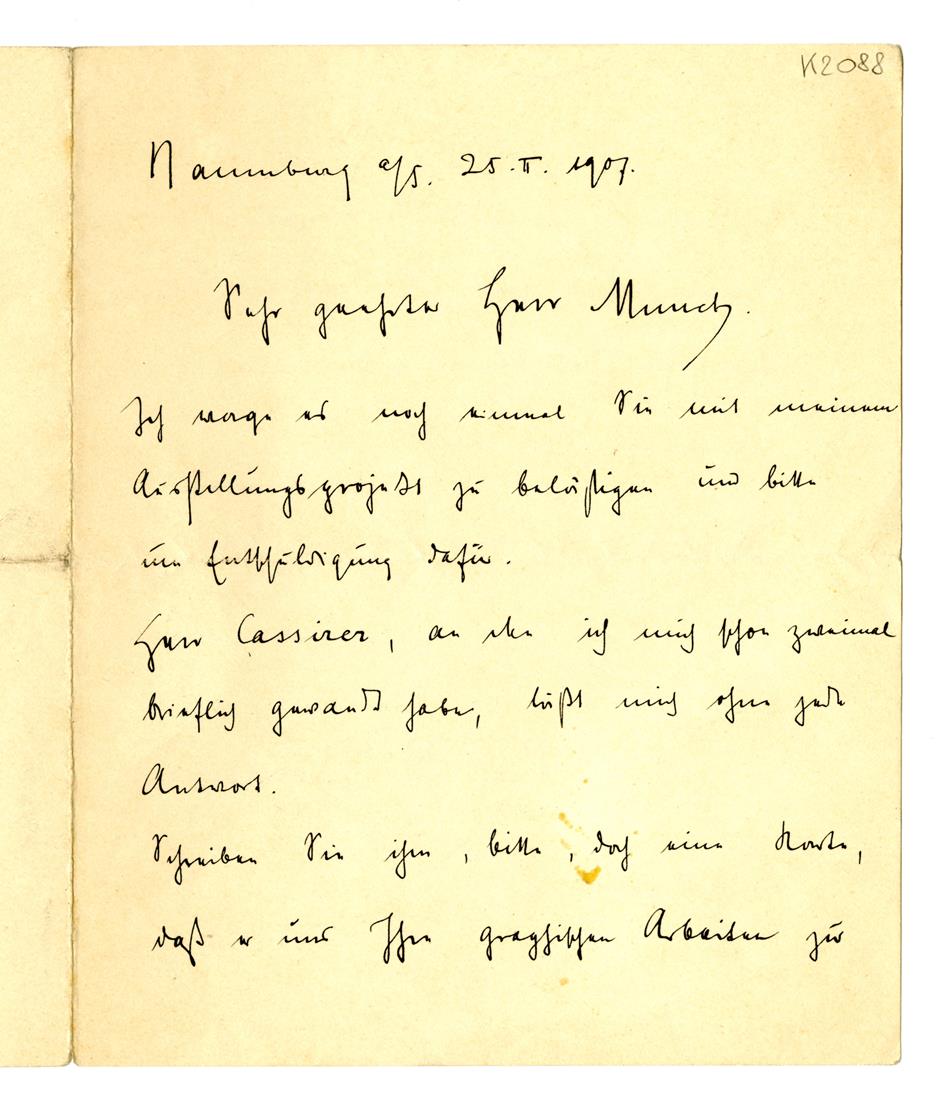 K2088
Naumburg a/S. 25.II. 1907.
Sehr geehrter Herr Munch.
Ich wage es noch einmal Sie mit meinem
Ausstellungsprojekt zu belästigen und bitte
um Entschuldigung dafür.
Herr Cassirer, an den ich mich schon zweimal
brieflich gewandt habe, läßt mich ohne jede
Antwort.
Schreiben Sie ihm, bitte, doch eine Karte,
daß er uns Ihre graphischen Arbeiten zu